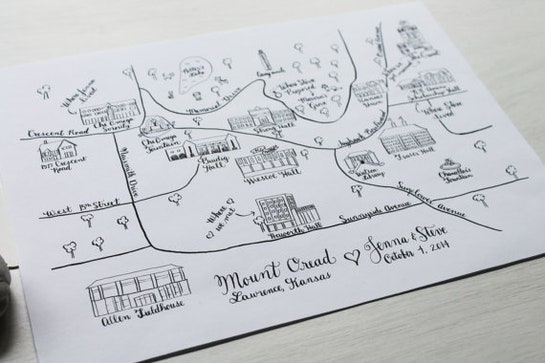 Potter's
Lake
Campanile
Where Jenna
Lived
Where Steve
Proposed
Marvin
Grove
Memorial Drive
Chi Omega
Sorority
Strong Hall
Where Steve
Lived
Crescent Road
Chi Omega
Fountain
Jayhawk Boulevard
1927 Crescent
Road
Budig
Hall
Wescoe Hall
Watson
Library
Fraser Hall
Chancellors
Fountain
Naismith Drive
West 18th Street
Where
we met
Haworth Hall
Sunnyside Avenue
Sunflower Avenue
Allen Fieldhouse
Mount Oread
Lawrence, Kansas
Jenna & Steve
October 4, 2014